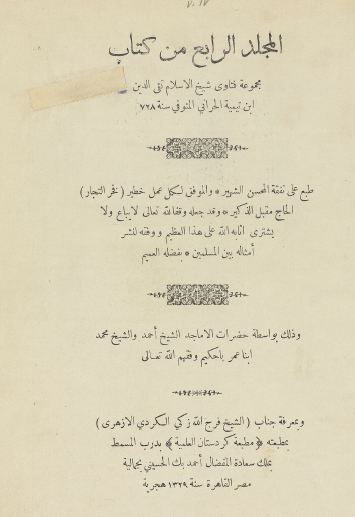 المجلد الرابع من كتاب
مجموعة فتاوى شيخ الاسلام تقى الدين
ابن تيمية الحرانى المتوفى سنة ٧٢٨
طبع على نفقة المحسن الشهير * والموفق لكل عمل خطير ( فخر التجار )
الحاج مقبل الذكير * وقد جعله وقفا لله تعالى لا يباع ولا
يشترى اثابه الله على هذا العظيم ووفقه لنشر
أمثاله بين المسلمين * بفضله العميم
وذلك بواسطة حضرات الاماجد الشيخ أحمد والشيخ محمد
ابنا عمر باحكيم وفقهم الله تعالى
وبمعرفة جناب ( الشيخ فرج الله زكي الكردي الازهرى )
بمطبعته ﴿ مطبعة كردستان العلمية ﴾ بدرب المسمط
بملك سعادة المفضال أحمد بك الحسينى بجمالية
مصر القاهرة سنة ١٣٢٩ هجرية